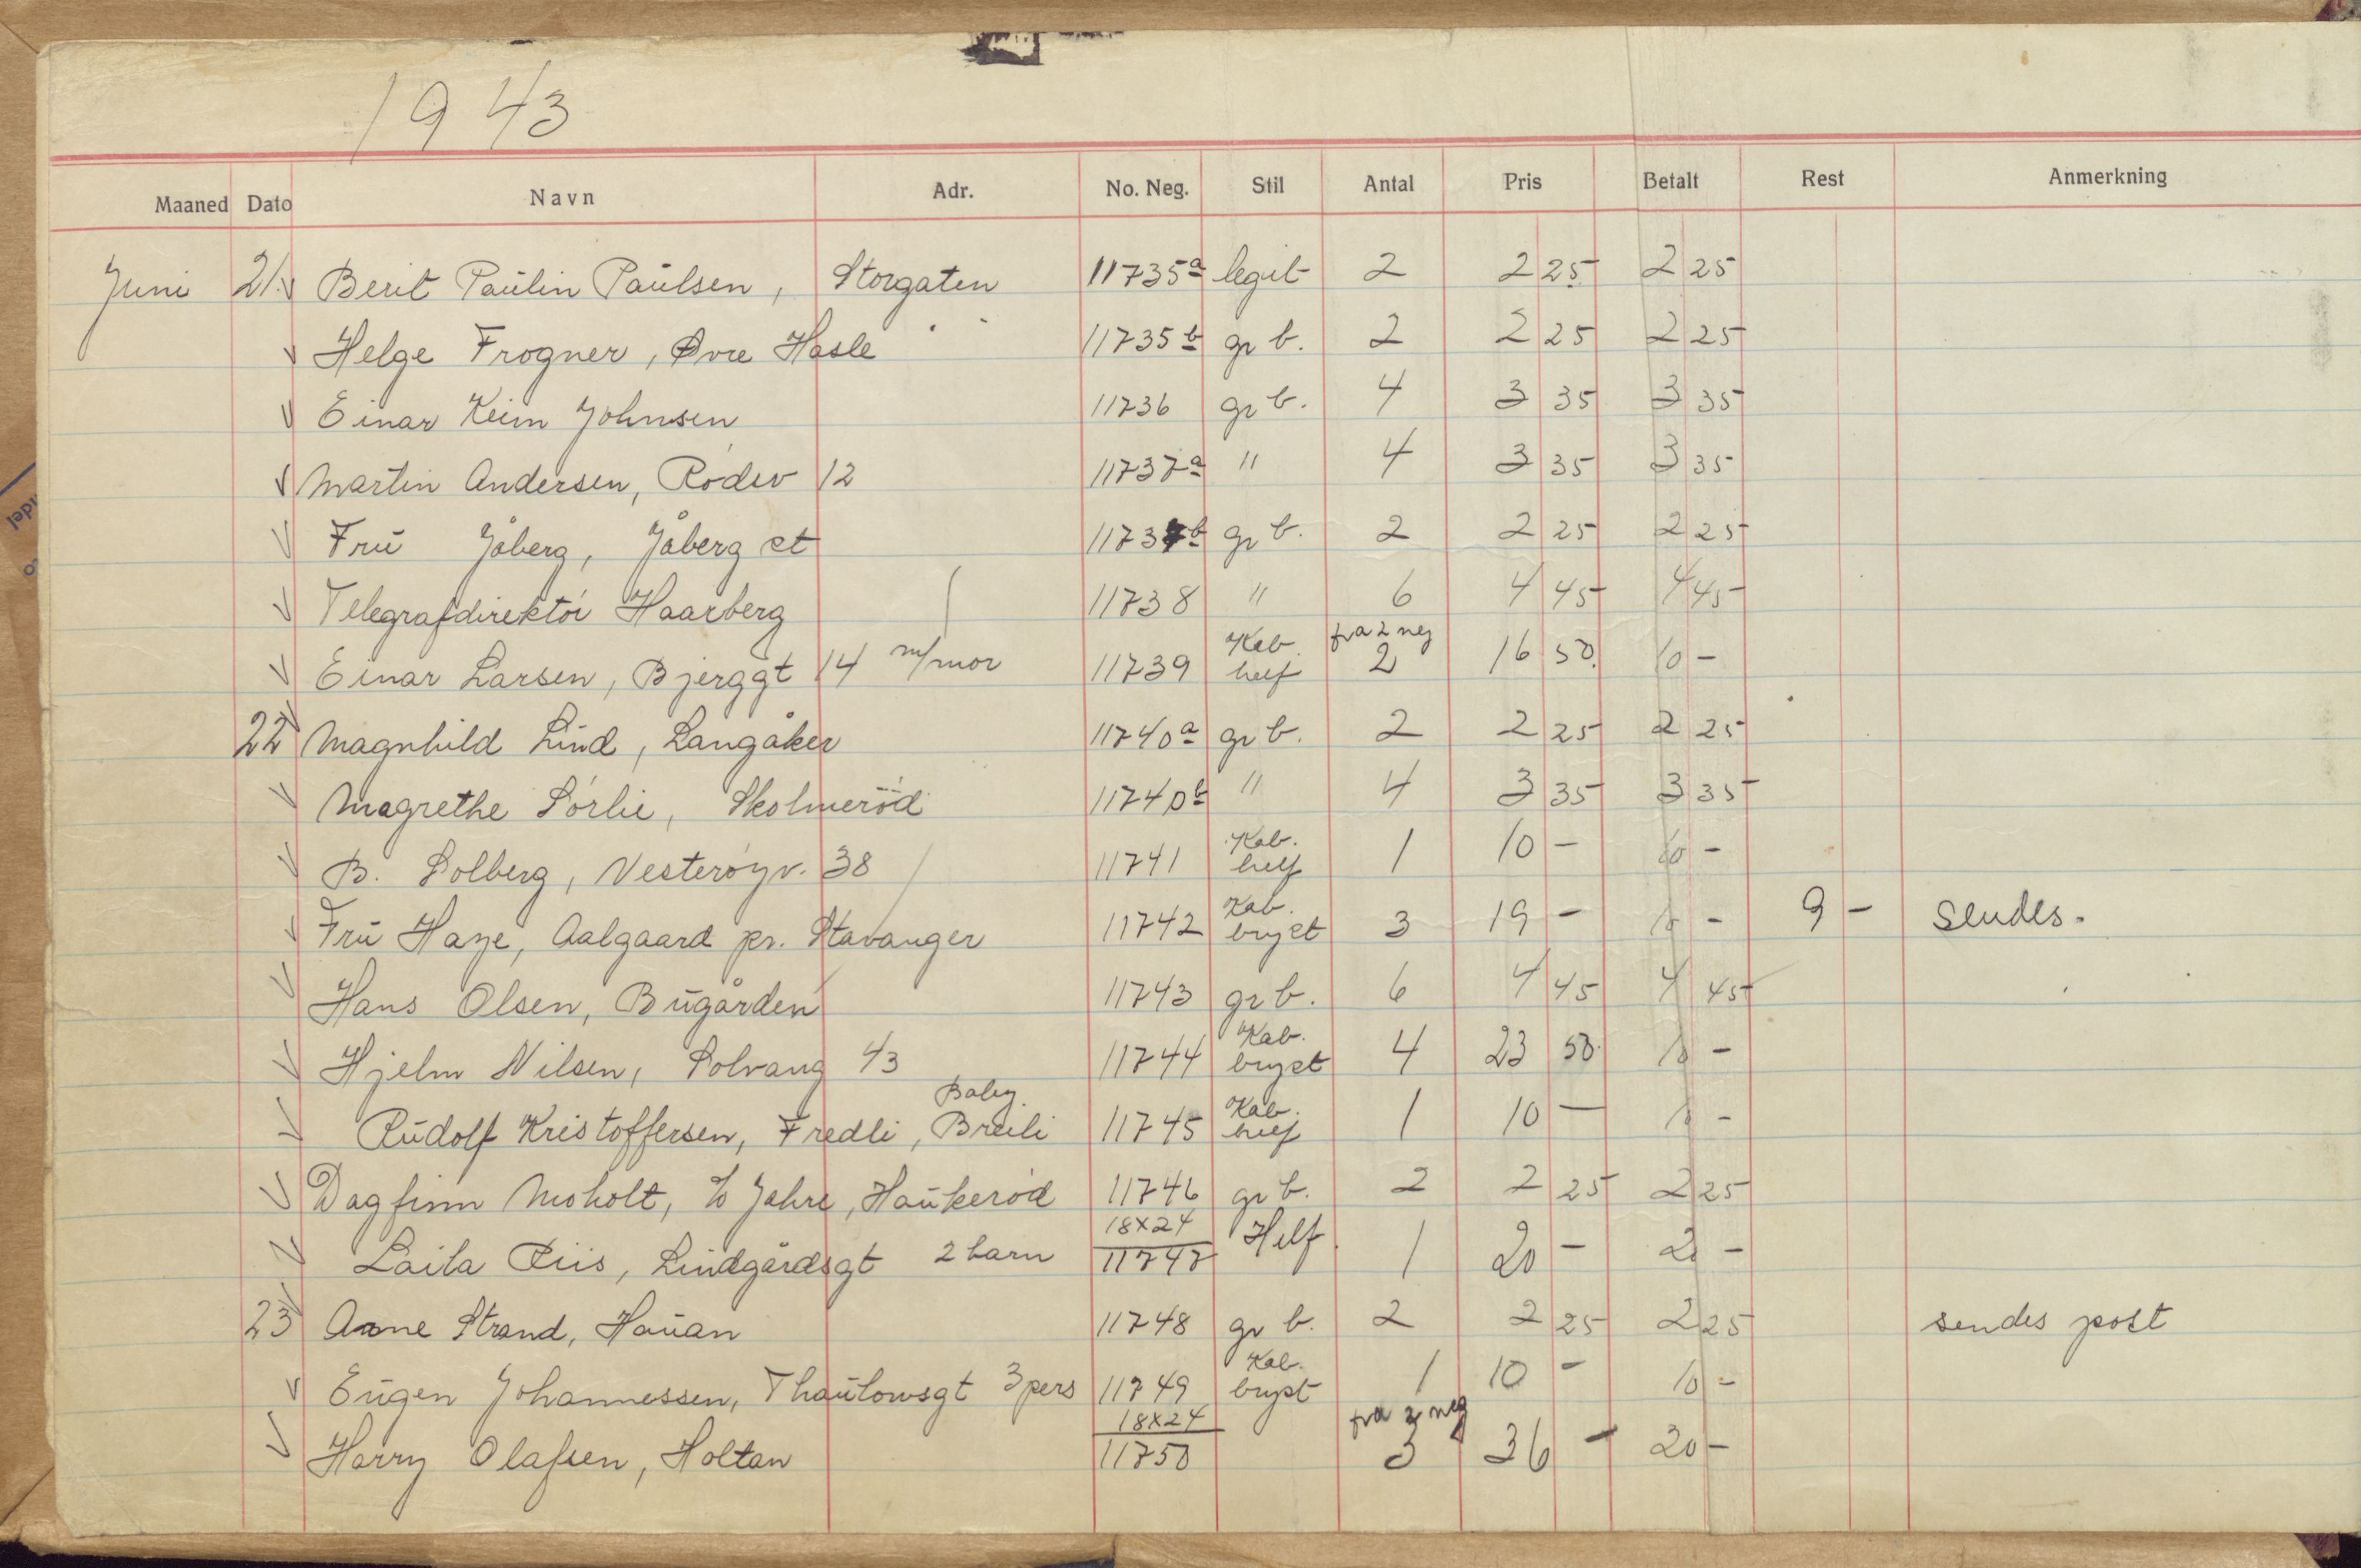 1943
Maaned Dato Navn Adr. No. Neg. Stil Antal Pris Betalt Rest Anmerkning
Juni 21. Berit Paulin Paulsen, Storgaten 11735a legit 2 2 25 2 25
Helge Frogner, Øvre Hasle 11735b gr b. 2 2 25 2 25
Einar Keim Johnsen 11736 gr b. 4 3 35 3 35
Martin Andersen, Rodev 12 11737a " 4 3 35 3 35
Fru Jåberg, Jåberg st 11737b gr b. 2 2 25 2 25
Telegrafdirektör Haarberg 11738 " 6 4 45 4 45
Einar Larsen, Bjerggt 14 m/mor 11739 Kab. helf fra 2 neg 2 16 50. 10 -
22 Magnhild Lind, Langåker 11740a gr b. 2 2 25 2 25
Magrethe Sörlie, Skolmeröd 11740b " 4 3 35 3 35
B. Solberg, Vesteröyv. 38 11741 Kab. helf 1 10 - 10 -
Fru Haye, Aalgaard pr. Stavanger 11742 Kab. bryst 3 19 - 10 - 9 - Sendes.
Hans Olsen, Bugården 11743 gr b. 6 4 45 4 45
Hjelm Nilsen, Solvang 43 11744 Kab. bryst 4 23 50. 10 -
Rudolf Kristoffersen, Fredli, Breili Baby. 11745 Kab. helf 1 10 - 10 -
Dagfinn Moholt, % Jahre, Haukeröd 11746 gr b. 2 2 25 2 25
Laila Riis, Lindgårdsgt 2 barn 18x24 11747 Helf. 1 20 - 20 -
23 Anne Strand, Hauan 11748 gr b. 2 2 25 2 25 sendes post
Eugen Johannessen, Thaulowsgt 3 pers 11749 Kab. bryst 1 10 - 10 -
Harry Olafsen, Holtan 18x24 11750 fra neg 3 36 - 20 -